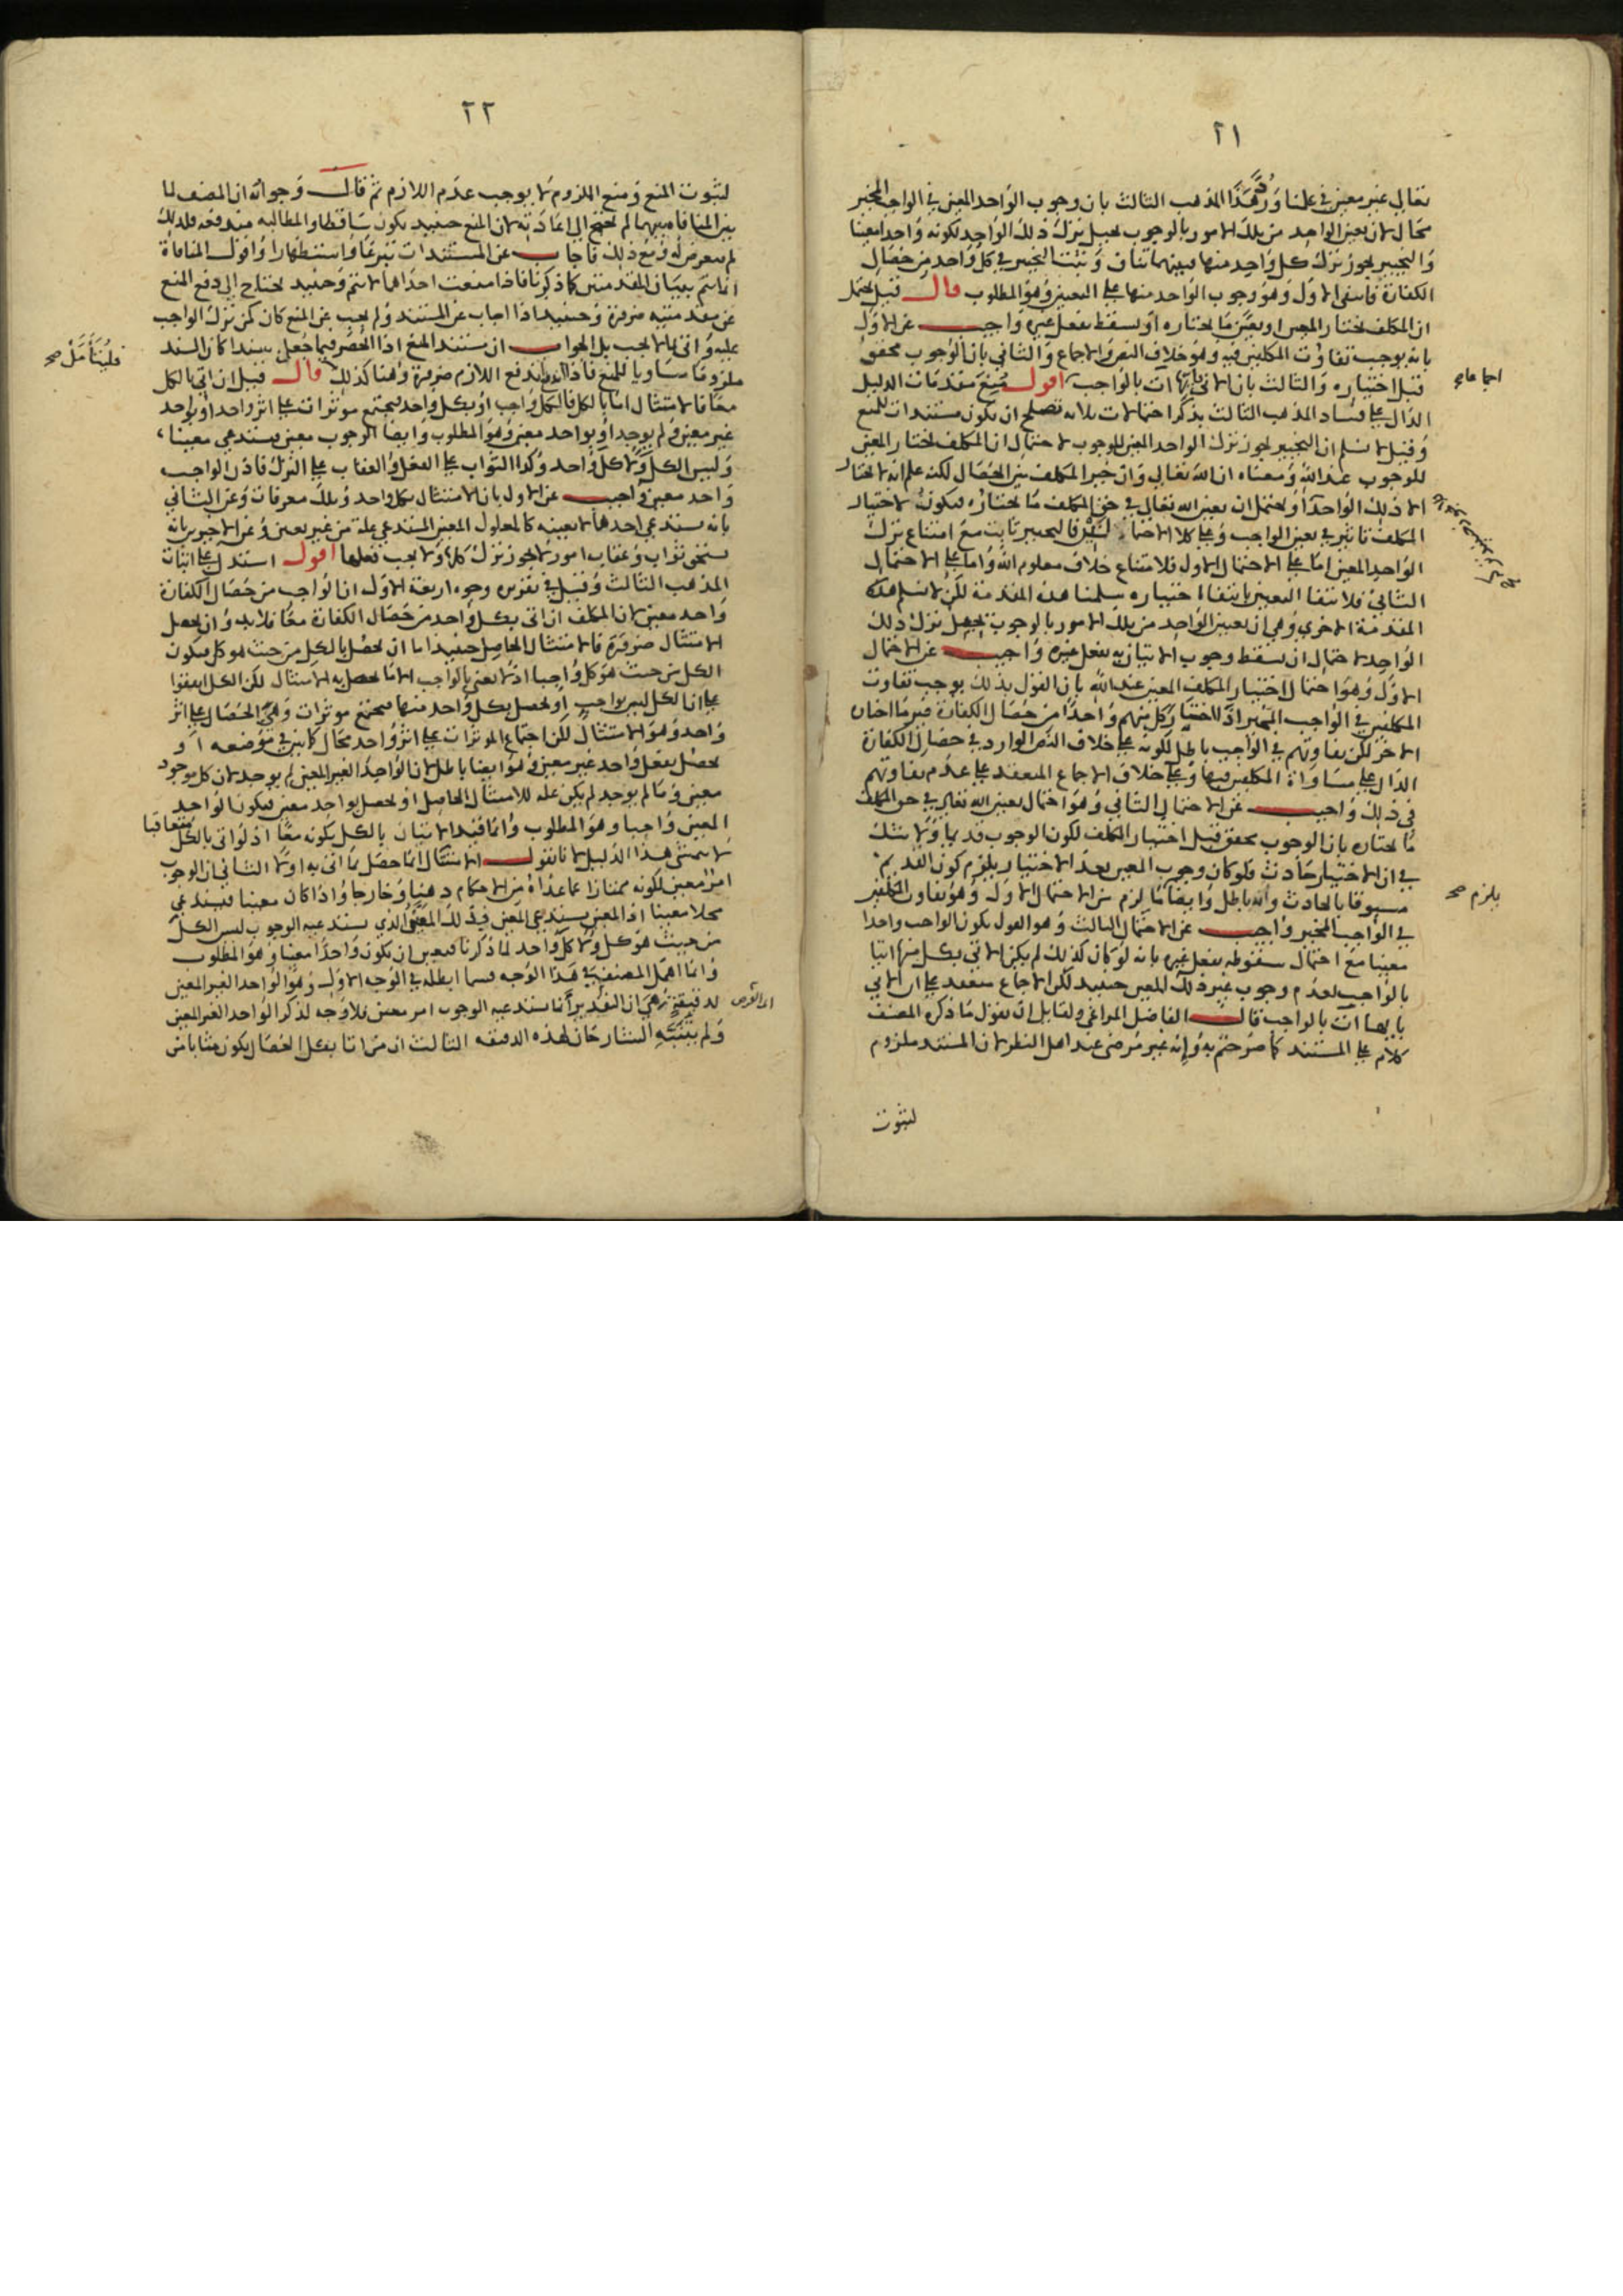 ٢١
تعالى غير معين في علمنا ورد هذا المذهب الثالث بان وجوب الواحد المعين في الواجب المخير
محال لان تعين الواحد من تلك الامور بالوجوب يحيل ترك ذلك الواحد لكونه واحدا معينا
والتخيير يجوز ترك كل واحد منها فبينهما تناف وثبت التخيير في كل واحد من خصال
الكفارة فانتفى الاول وهو وجوب الواحد منها على التعيين وهو المطلوب قال قيل يحتمل
ان المكلف يختار المعين او يعين ما يختاره او يسقط بفعل غيره واجيب عن الاول
بانه يوجب تفاوت المكلفين فيه وهو خلاف النص والاجماع والثاني بان الوجوب محقق
قبل اختياره والثالث بان الاتي بايها ات بالواجب اقول منع مقدمات الدليل
اجماعا صح
الدال على فساد المذهب الثالث بذكر احتمالات ثلاثه تصلح ان تكون مستندات للمنع
وقيل لا نسلم ان التخيير يجوز ترك الواحد المعين للوجوب لاحتمال ان المكلف يختار المعين
للوجوب عند الله ومعناه ان الله تعالى وان خير المكلف بين الخصال لكنه علم انه لا يختار
الا ذلك الواحد او يحتمل ان يعين الله تعالى في حق المكلف ما يختاره فيكون لاختيار
المكلف تاثير في تعين الواجب وعلى كلا الاحتمالين فالتخيير ثابت مع امتناع ترك
الواحد المعين اما على الاحتمال الاول فلامتناع خلاف معلوم الله واما على الاحتمال
الثاني فلانتفا التعيين بانتفاء اختياره سلمنا هذه المقدمة لكن لا نسلم هذه
المقدمة الاخرى وهي ان تعين الواحد من تلك الامور بالوجوب يحيل ترك ذلك
الواحد لاحتمال ان يسقط وجوب الاتيان به بفعل غيره واجيب عن الاحتمال
الاول وهو احتمال اختيار المكلف المعين عند الله بان القول بذلك يوجب تفاوت
المكلفين في الواجب المخير اذا اختار كل منهم واحدا من خصال الكفارة غير ما اختاره
الاخر لكن تفاوتهم في الواجب باطل لكونه على خلاف النص الوارد في خصال الكفارة
الدال على مساواة المكلفين فيها وعلى خلاف الاجماع المنعقد على عدم تفاوتهم
في ذلك واجيب عن الاحتمال الثاني وهو احتمال تعيين الله تعالى في حق المكلف
ما يختاره بان الوجوب محقق قبل اختيار المكلف لكون الوجوب قديما ولا شك
في ان الاختيار حادث فلو كان وجوب المعين بعد الاختيار يلزم كون القديم
مسبوقا بالحادث وانه باطل وايضا ما لزم من الاحتمال الاول وهو تفاوت المكلفين
يلزم صح
في الواجب المخير واجيب عن الاحتمال الثالث وهو القول بكون الواجب واحدا
معينا مع احتمال سقوطه بفعل غيره بانه لو كان كذلك لم يكن الاتي بكل منها اتيا
بالواجب لعدم وجوب غير ذلك المعين حينيد لكن الاجماع منعقد على ان الاتي
بايها ات بالواجب قال الفاضل المراغي ولقابل ان يقول ما ذكره المصنف
كلام على المستند كما صرحتم به وانه غير مرضى عند اهل النظر لان المستند ملزوم
لثبوت
٢٢
لثبوت المنع ومنع الملزوم لا يوجب عدم اللازم ثم قال وجوابه ان المصنف لما
بين المنافاه بينهما لم يحتج الى اعادته لان المنع حينيد يكون ساقطا والمطالبه مندفعه فلذلك
لم يتعرض له ومع ذلك فاجاب عن المستندات تبرعا واستظهارا واقول المنافاة
انما تتم ببيان المقدمتين كما ذكرنا فاذا منعت احداهما لا تتم وحينيد يحتاج الى دفع المنع
عن مقدمتيه ضرورة وحينيد اذا اجاب عن المستند ولم يجب عن المنع كان كمن ترك الواجب
عليه واتى بما لا يجب بل الجواب ان مستند المنع اذا انحصر فيما جعل سندا كان السند
فليتأمل صح
ملزوما مساويا للمنع فاذا اندفع اندفع اللازم ضرورة وهنا كذلك قال قيل ان اتى بالكل
معا فالامتثال اما بالكل فالكل واجب او بكل واحد فيجتمع موثرات على اثر واحد او بواحد
غير معين ولم يوجد او بواحد معين وهو المطلوب وايضا الوجوب معين يستدعي معينا
وليس الكل ولا كل واحد وكذا الثواب على الفعل والعقاب على الترك فاذن الواجب
واحد معين واجيب عن الاول بان الامتثال بكل واحد وتلك معرفات وعن الثاني
بانه يستدعي احدها لا بعينه كالمعلول المعين المستدعي علة من غير تعين وعن الاخيرين بانه
يستحق ثواب وعقاب امور لا يجوز ترك كلها ولا يجب فعلها اقول استدل على اثبات
المذهب الثالث وقيل في تقريره وجوه اربعة الاول ان الواجب من خصال الكفارة
واحد معين لان المكلف ان اتى بكل واحد من خصال الكفارة معا فلا بد وان يحصل
الامتثال ضرورة فالامتثال الحاصل حينيد اما ان يحصل بالكل من حيث هو كل فيكون
الكل من حيث هو كل واجبا اذ لا يعنى بالواجب الا ما يحصل به الامتثال لكن الكل اتفقوا
على ان الكل ليس بواجب او يحصل بكل واحد منها فيجتمع موثرات وهي الخصال على اثر
واحد وهو الامتثال لكن اجتماع الموثرات على اثر واحد محال كما بين في موضعه او
يحصل بفعل واحد غير معين وهو ايضا باطل لان الواحد الغير المعين لم يوجد لان كل موجود
معين وما لم يوجد لم يكن علة للامتثال الحاصل او يحصل بواحد معين فيكون الواحد
المعين واجبا وهو المطلوب وانما قيد الاتيان بالكل بكونه معا اذ لو اتى بالكل متعاقبا
لا يتمشى هذا الدليل لانا نقول الامتثال انما حصل بما اتى به اولا الثاني ان الوجوب
امر معين لكونه ممتازا عما عداه من الاحكام ذهنا وخارجا واذا كان معينا فيستدعي
محلا معينا اذ المعين يستدعي المعين فذلك المعين الذي يستدعيه الوجوب ليس الكل
من حيث هو كل ولا كل واحد لما ذكرنا فتعين ان يكون واحدا معينا وهو المطلوب
وانما اهمل المصنف في هذا الوجه قسما ابطله في الوجه الاول وهو الواحد الغير المعين
لدقيقة وهي ان التقدير أنما يستدعيه الوجوب امر معين فلا وجه لذكر الواحد الغير المعين
ولم يتنبه الشارحان لهذه الدقيقه الثالث ان من اتى بكل الخصال يكون مثابا من